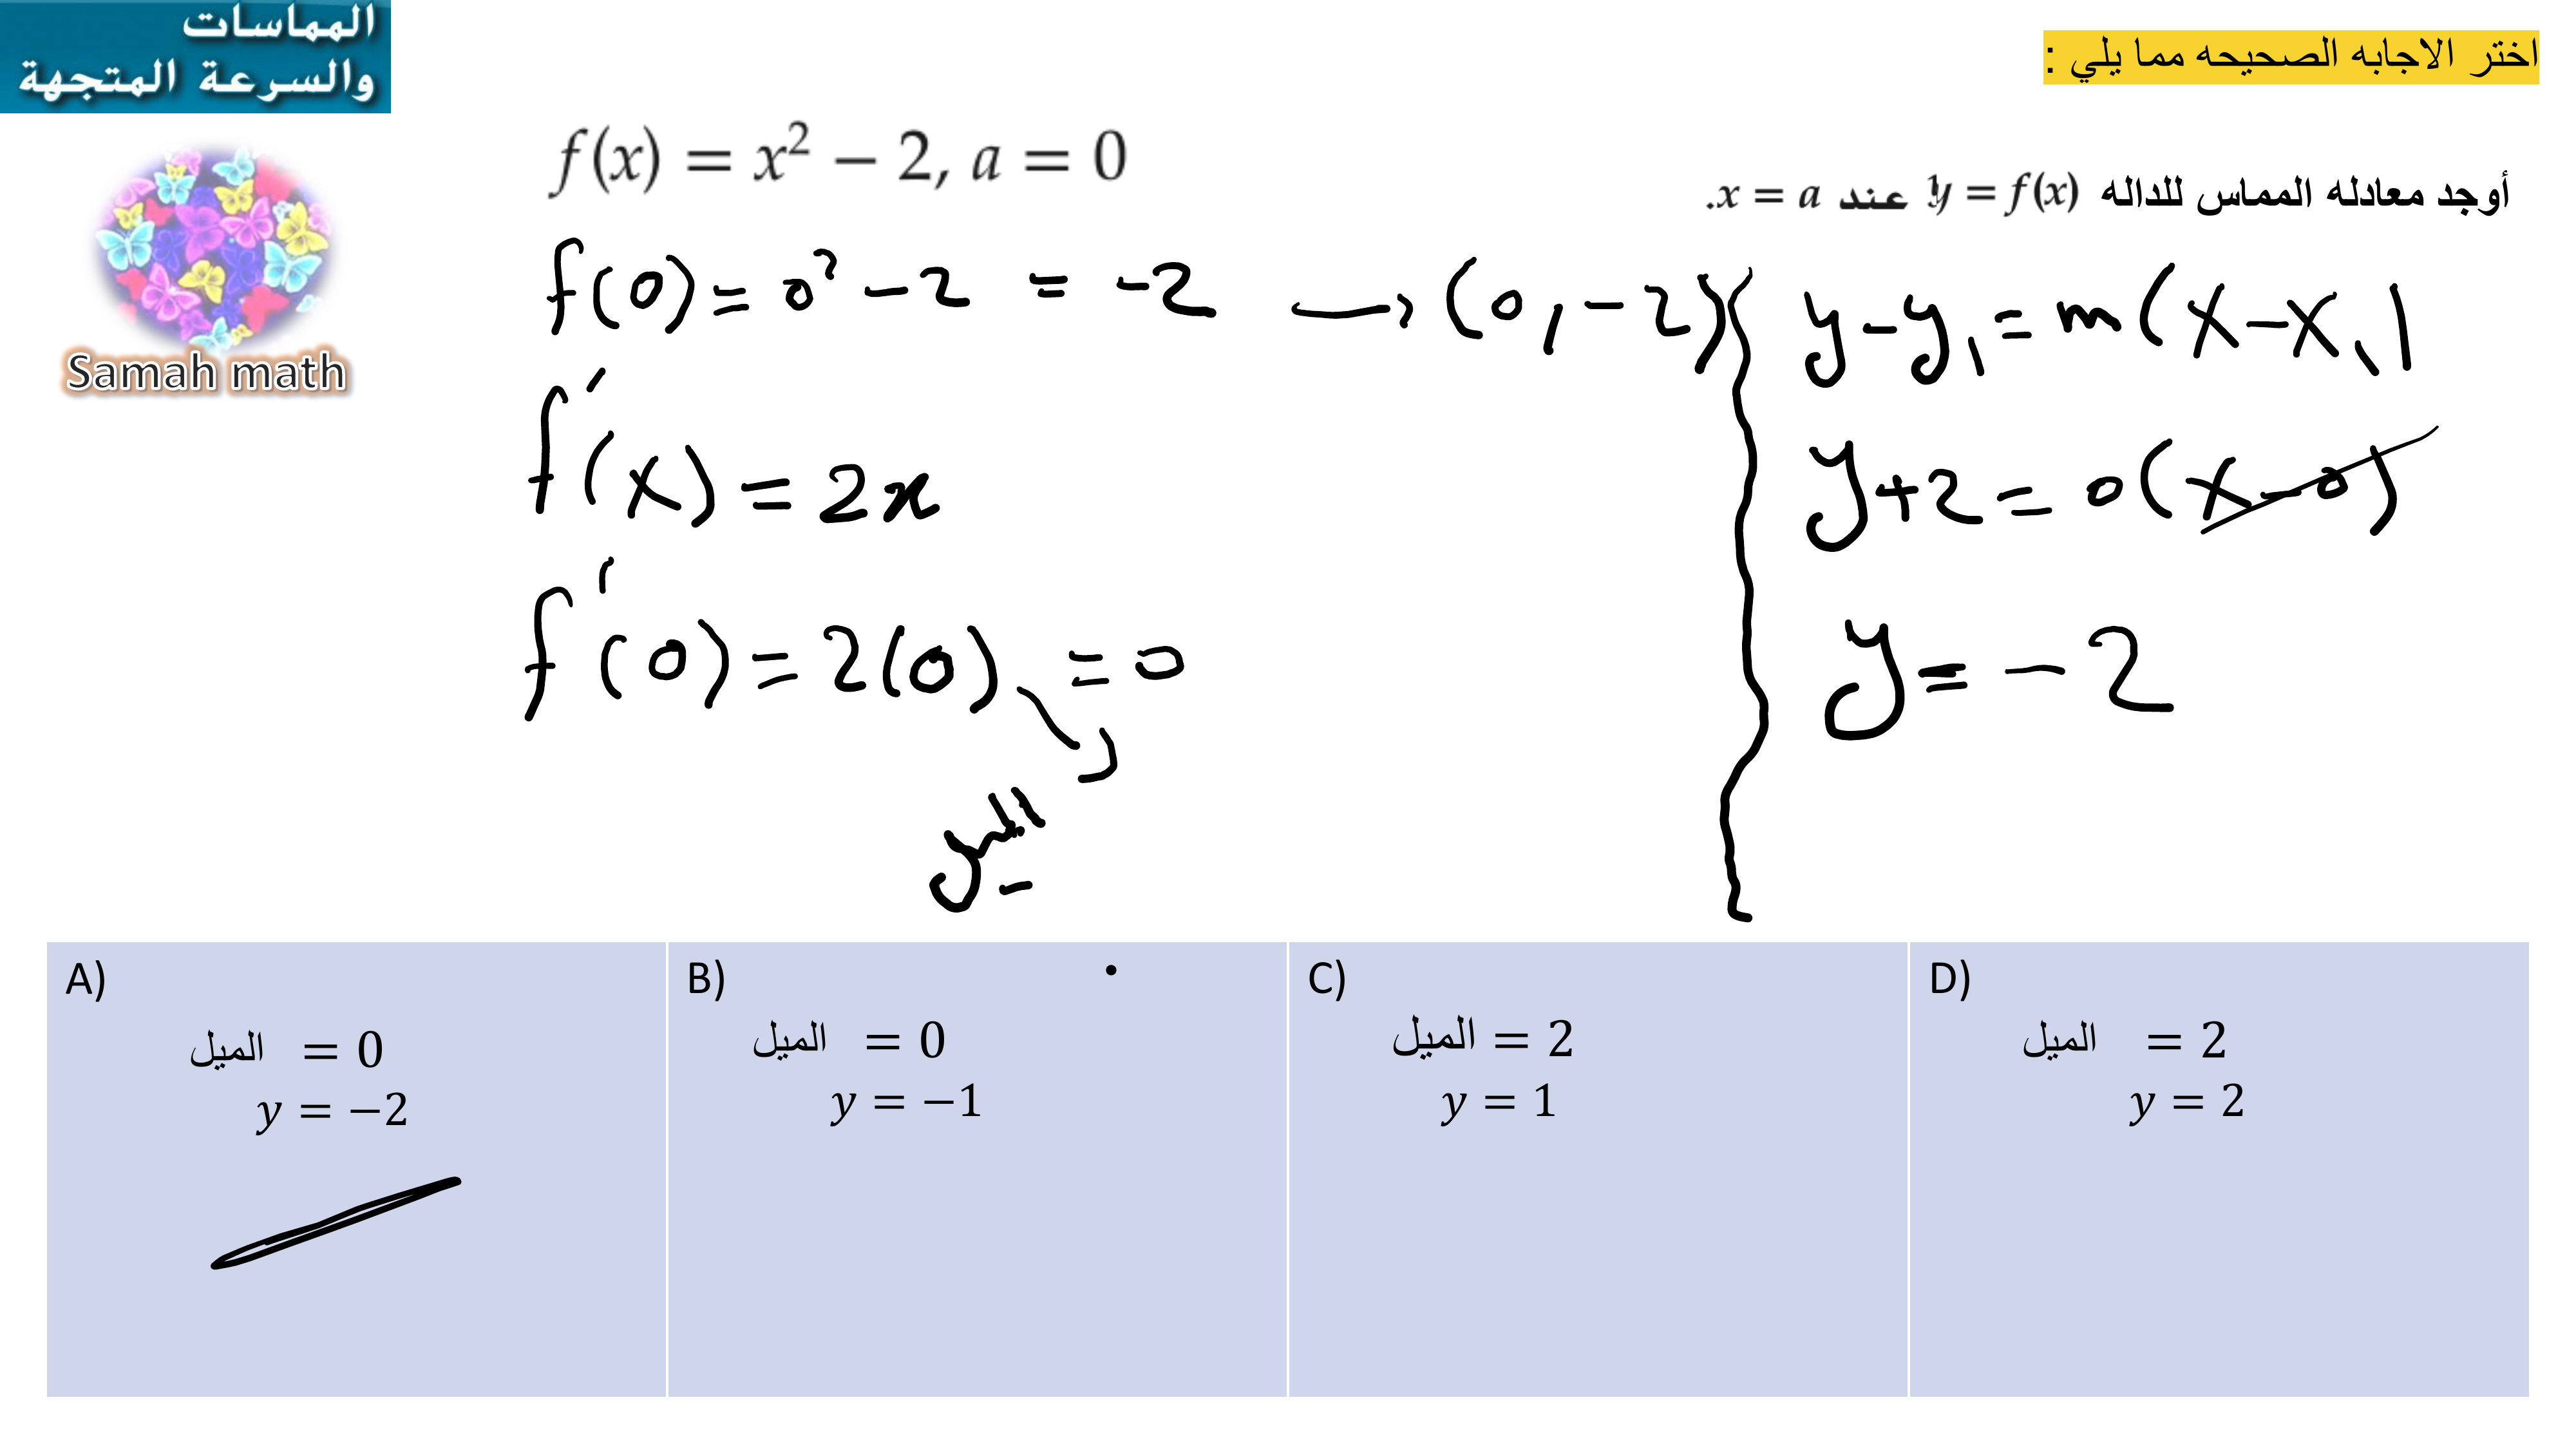 المماسات
والسرعة المتجهة
Samah math
اختر الاجابه الصحيحه مما يلي :
أوجد معادله المماس للداله y = f(x) عند x = a.
f(x) = x² − 2, a = 0
f(0) = 0² − 2 = −2 → (0, −2)
f'(x) = 2x
f'(0) = 2(0) = 0
الميل
y − y₁ = m(x − x₁)
y + 2 = 0(x − 0)
y = −2
A)
الميل = 0
y = −2
B)
الميل = 0
y = −1
C)
الميل = 2
y = 1
D)
الميل = 2
y = 2